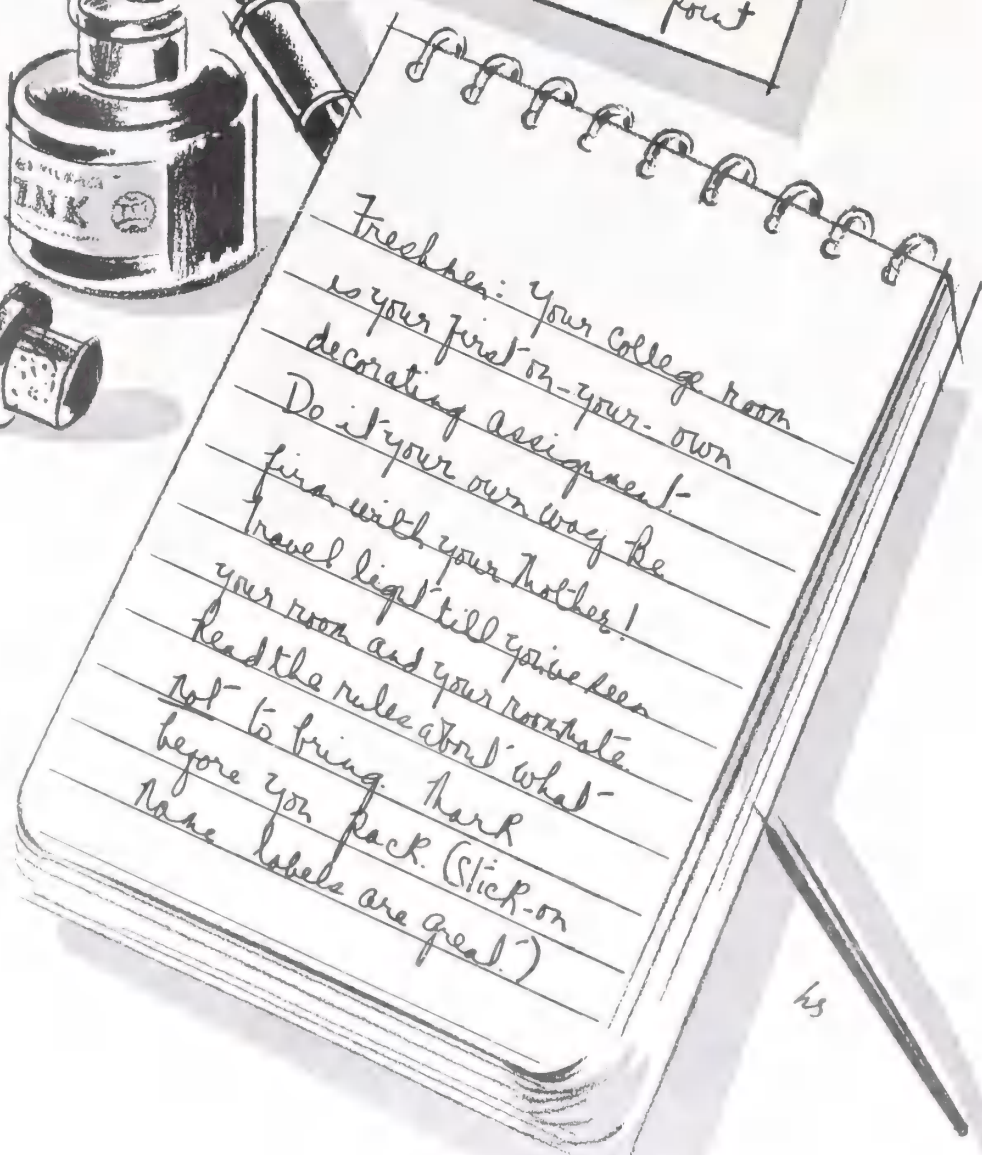 point
INK
Freshmen: Your college room
is your first on-your-own
decorating assignment.
Do it your own way. Be
firm with your Mother!
Travel light till you've seen
your room and your roommate.
Read the rules about what
not to bring. Mark
before you pack. (Stick-on
name labels are great.)
hs